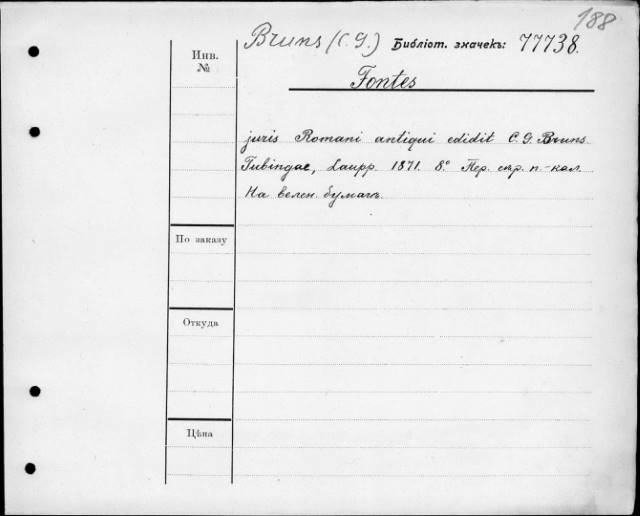 188
Bruns (C. G.) Библіот. значекъ: 77738.
Инв.
№
Fontes
juris Romani antiqui edidit C. G. Bruns.
Tubingae, Laupp. 1871. 8º. Пер. сѣр. п.-кол.
На велен. бумагѣ.
По заказу
Откуда
Цѣна